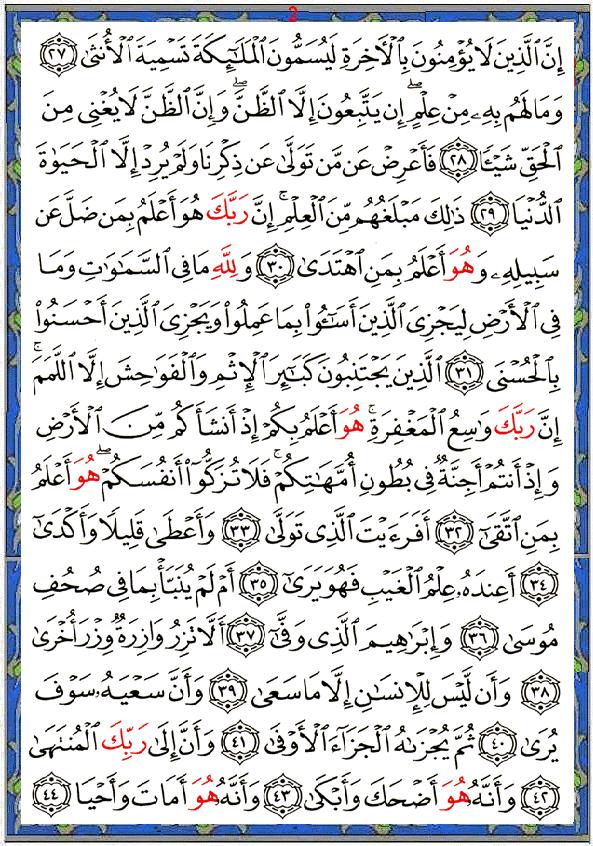 2
إِنَّ ٱلَّذِينَ لَا يُؤْمِنُونَ بِٱلْأَخِرَةِ لَيُسَمُّونَ ٱلْمَلَٰٓئِكَةَ تَسْمِيَةَ ٱلْأُنثَىٰ ٢٧
وَمَا لَهُم بِهِۦ مِنْ عِلْمٍ ۖ إِن يَتَّبِعُونَ إِلَّا ٱلظَّنَّ ۖ وَإِنَّ ٱلظَّنَّ لَا يُغْنِى مِنَ
ٱلْحَقِّ شَيْـًٔا ٢٨ فَأَعْرِضْ عَن مَّن تَوَلَّىٰ عَن ذِكْرِنَا وَلَمْ يُرِدْ إِلَّا ٱلْحَيَوٰةَ
ٱلدُّنْيَا ٢٩ ذَٰلِكَ مَبْلَغُهُم مِّنَ ٱلْعِلْمِ ۚ إِنَّ رَبَّكَ هُوَ أَعْلَمُ بِمَن ضَلَّ عَن
سَبِيلِهِۦ وَهُوَ أَعْلَمُ بِمَنِ ٱهْتَدَىٰ ٣٠ وَلِلَّهِ مَا فِى ٱلسَّمَٰوَٰتِ وَمَا
فِى ٱلْأَرْضِ لِيَجْزِىَ ٱلَّذِينَ أَسَٰٓـُٔوا۟ بِمَا عَمِلُوا۟ وَيَجْزِىَ ٱلَّذِينَ أَحْسَنُوا۟
بِٱلْحُسْنَى ٣١ ٱلَّذِينَ يَجْتَنِبُونَ كَبَٰٓئِرَ ٱلْإِثْمِ وَٱلْفَوَٰحِشَ إِلَّا ٱللَّمَمَ ۚ
إِنَّ رَبَّكَ وَٰسِعُ ٱلْمَغْفِرَةِ ۚ هُوَ أَعْلَمُ بِكُمْ إِذْ أَنشَأَكُم مِّنَ ٱلْأَرْضِ
وَإِذْ أَنتُمْ أَجِنَّةٌ فِى بُطُونِ أُمَّهَٰتِكُمْ ۖ فَلَا تُزَكُّوٓا۟ أَنفُسَكُمْ ۖ هُوَ أَعْلَمُ
بِمَنِ ٱتَّقَىٰٓ ٣٢ أَفَرَءَيْتَ ٱلَّذِى تَوَلَّىٰ ٣٣ وَأَعْطَىٰ قَلِيلًا وَأَكْدَىٰٓ
٣٤ أَعِندَهُۥ عِلْمُ ٱلْغَيْبِ فَهُوَ يَرَىٰٓ ٣٥ أَمْ لَمْ يُنَبَّأْ بِمَا فِى صُحُفِ
مُوسَىٰ ٣٦ وَإِبْرَٰهِيمَ ٱلَّذِى وَفَّىٰٓ ٣٧ أَلَّا تَزِرُ وَازِرَةٌ وِزْرَ أُخْرَىٰ
٣٨ وَأَن لَّيْسَ لِلْإِنسَٰنِ إِلَّا مَا سَعَىٰ ٣٩ وَأَنَّ سَعْيَهُۥ سَوْفَ
يُرَىٰ ٤٠ ثُمَّ يُجْزَىٰهُ ٱلْجَزَآءَ ٱلْأَوْفَىٰ ٤١ وَأَنَّ إِلَىٰ رَبِّكَ ٱلْمُنتَهَىٰ
٤٢ وَأَنَّهُۥ هُوَ أَضْحَكَ وَأَبْكَىٰ ٤٣ وَأَنَّهُۥ هُوَ أَمَاتَ وَأَحْيَا ٤٤